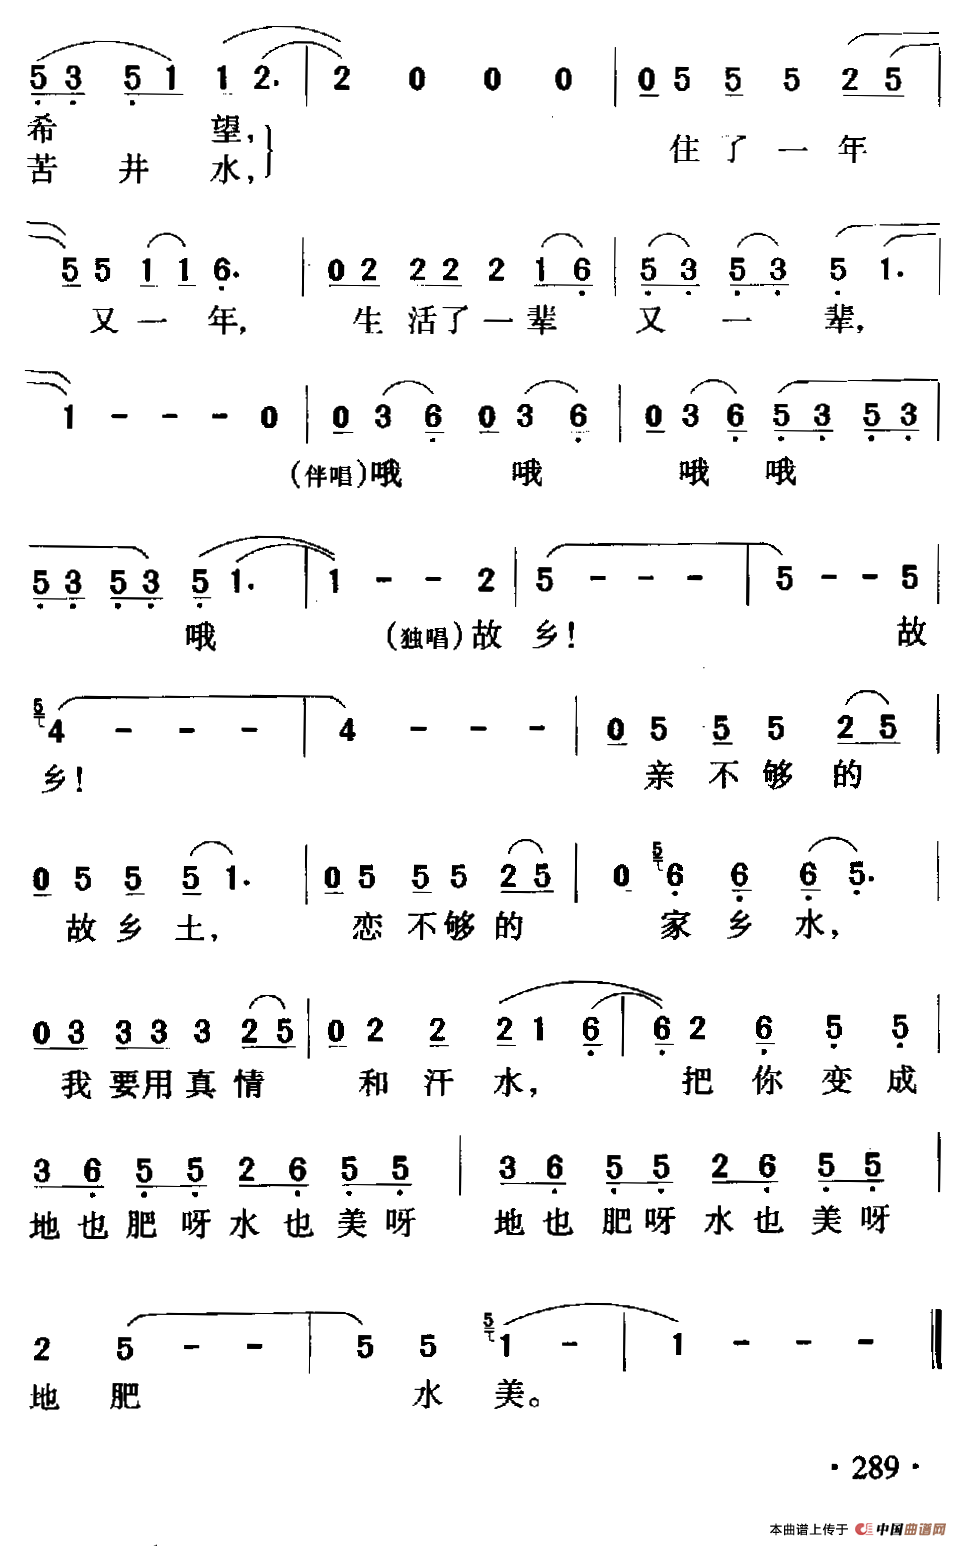 5 3 5 1 1 2. | 2 0 0 0 | 0 5 5 5 2 5 |
希 望,
苦 井 水, 住 了 一 年
5 5 1 1 6. | 0 2 2 2 2 1 6 | 5 3 5 3 5 1. |
又 一 年, 生 活 了 一 辈 又 一 辈,
1 - - - 0 | 0 3 6 0 3 6 | 0 3 6 5 3 5 3 |
(伴唱)哦 哦 哦 哦
5 3 5 3 5 1. | 1 - - 2 | 5 - - - | 5 - - 5 |
哦 (独唱)故 乡! 故
5 4 - - - | 4 - - - | 0 5 5 5 2 5 |
乡! 亲 不 够 的
0 5 5 5 1. | 0 5 5 5 2 5 | 0 5 6 6 6 5. |
故 乡 土, 恋 不 够 的 家 乡 水,
0 3 3 3 3 2 5 | 0 2 2 2 1 6 | 6 2 6 5 5 |
我 要 用 真 情 和 汗 水, 把 你 变 成
3 6 5 5 2 6 5 5 | 3 6 5 5 2 6 5 5 |
地 也 肥 呀 水 也 美 呀 地 也 肥 呀 水 也 美 呀
2 5 - - | 5 5 5 1 - | 1 - - - ‖
地 肥 水 美。
·289·
本曲谱上传于 中国曲谱网